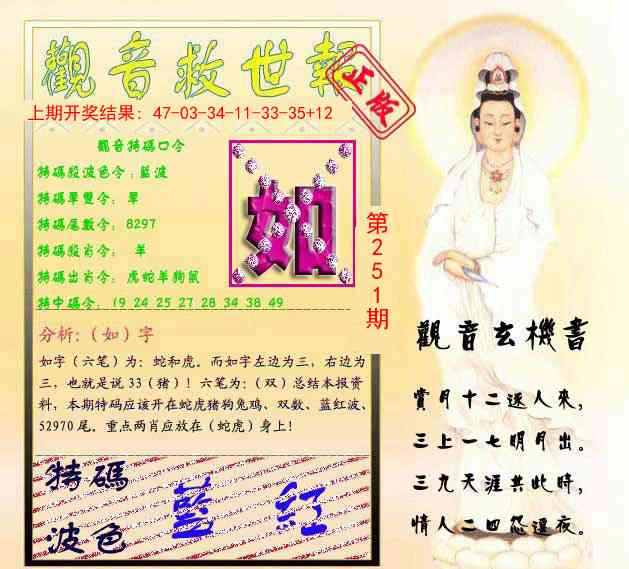 觀音救世報
正版
上期开奖结果：47-03-34-11-33-35+12
觀音特碼口令
特碼殺波色令：藍波
特碼單雙令：單
特碼尾數令：8297
特碼殺肖令： 羊
特碼出肖令：虎蛇羊狗鼠
特中碼令：19 24 25 27 28 34 38 49
如
第251期
分析:（如）字
如字（六笔）为：蛇和虎。而如字左边为三，右边为
三，也就是说 33（猪）！六笔为：（双）总结本报资
料，本期特码应该开在蛇虎猪狗兔鸡、双数、蓝红波、
52970 尾。重点两肖应放在（蛇虎）身上！
特碼
波色
藍 紅
觀音玄機書
賞月十二逐人來，
三上一七明月出。
三九天涯共此時，
情人二四怨遥夜。